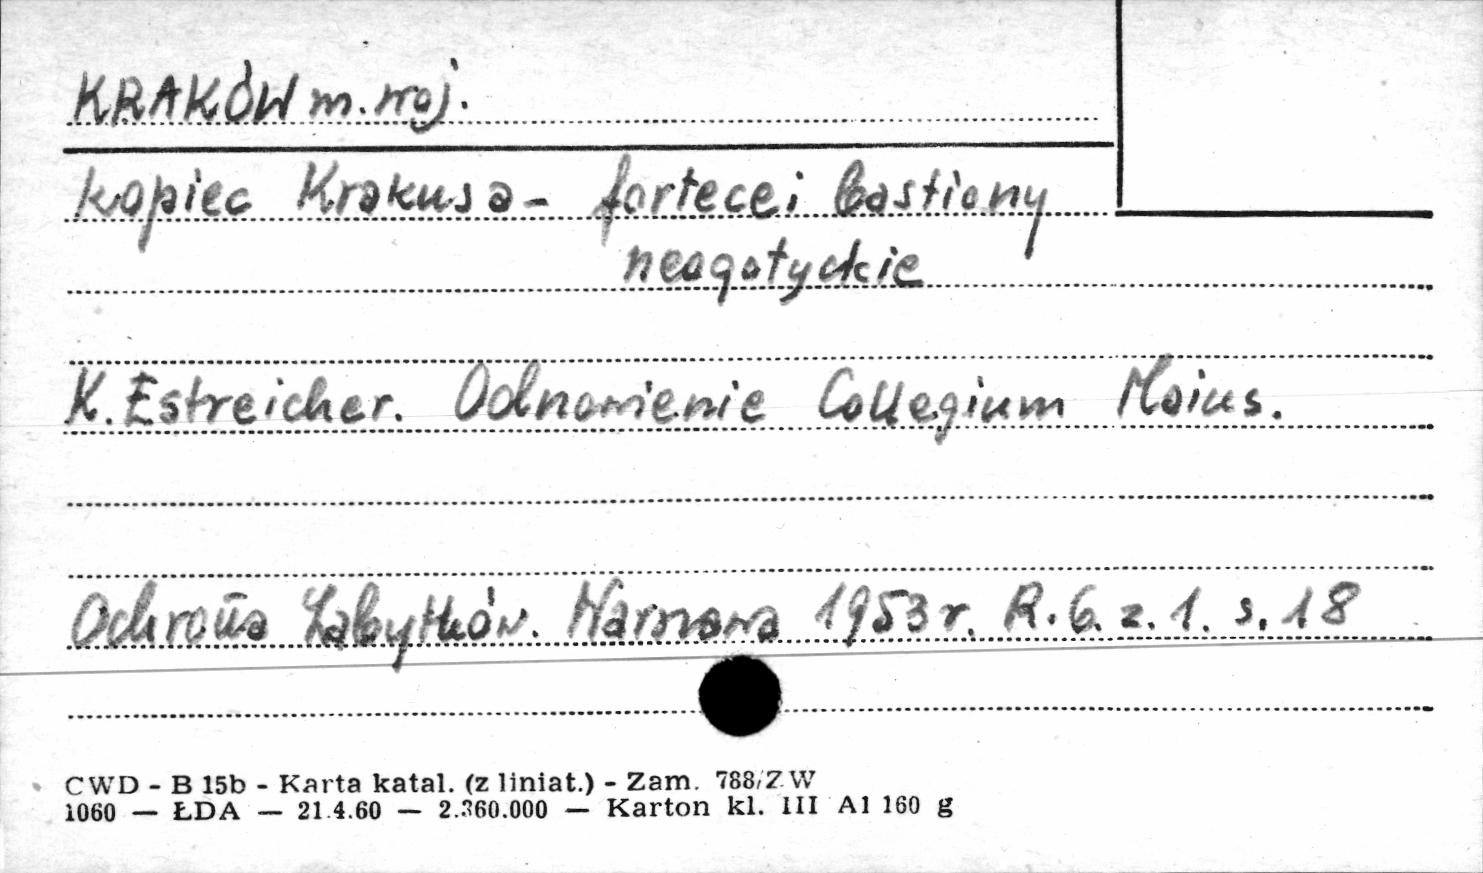 KRAKÓW m. woj.
kopiec Krakusa - fortece i bastiony
neogotyckie
K. Estreicher. Odnowienie Collegium Maius.
Ochrona Zabytków. Warszawa 1953 r. R. 6. z. 1. s. 18
CWD - B 15b - Karta katal. (z liniat.) - Zam. 788/ZW
1060 — ŁDA — 21.4.60 — 2.360.000 — Karton kl. III A1 160 g